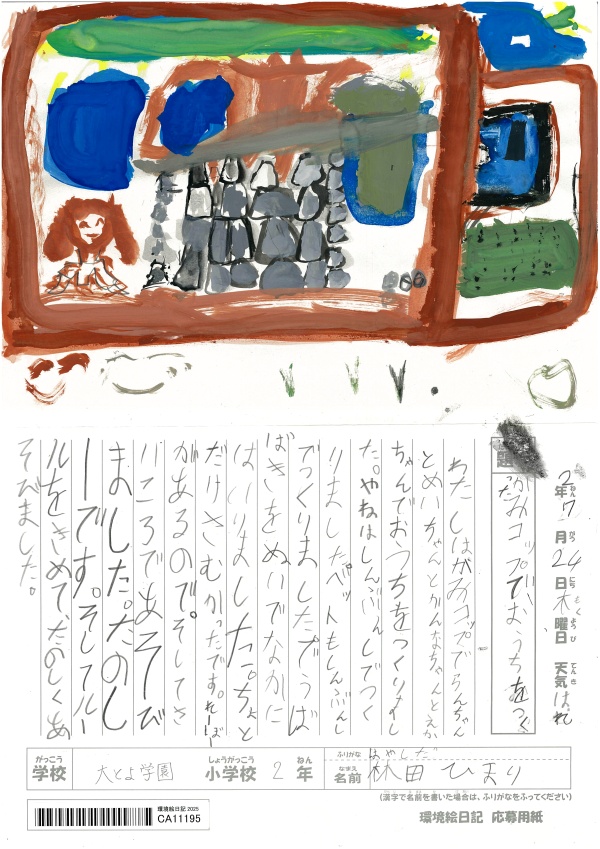 2年7月24日木曜日 天気はれ
ねん がつ にち もくようび てんき
題
がみコップでおうちをつく
わたしはがみコップでらんちゃん
とめいちゃんとかんなちゃんとえか
ちゃんでおうちをつくりまし
た。やねはしんぶんしでつく
りました。ペットもしんぶんし
でつくりましたでうば
ばきをぬいでなかに
はいりました。ちょと
だけさむかったです。れーぼー
があるので。そしてさ
いころであそーび
ました。たのし
ーです。そしてルー
ルをきめて、たのしくあ
そびました。
がっこう しょうがっこう ねん ふりがな はやしだ
学校 大とよ学園 小学校 2年 なまえ 名前 林田 ひまり
(漢字で名前を書いた場合は、ふりがなをふってください)
環境絵日記 2025
CA11195
環境絵日記 応募用紙